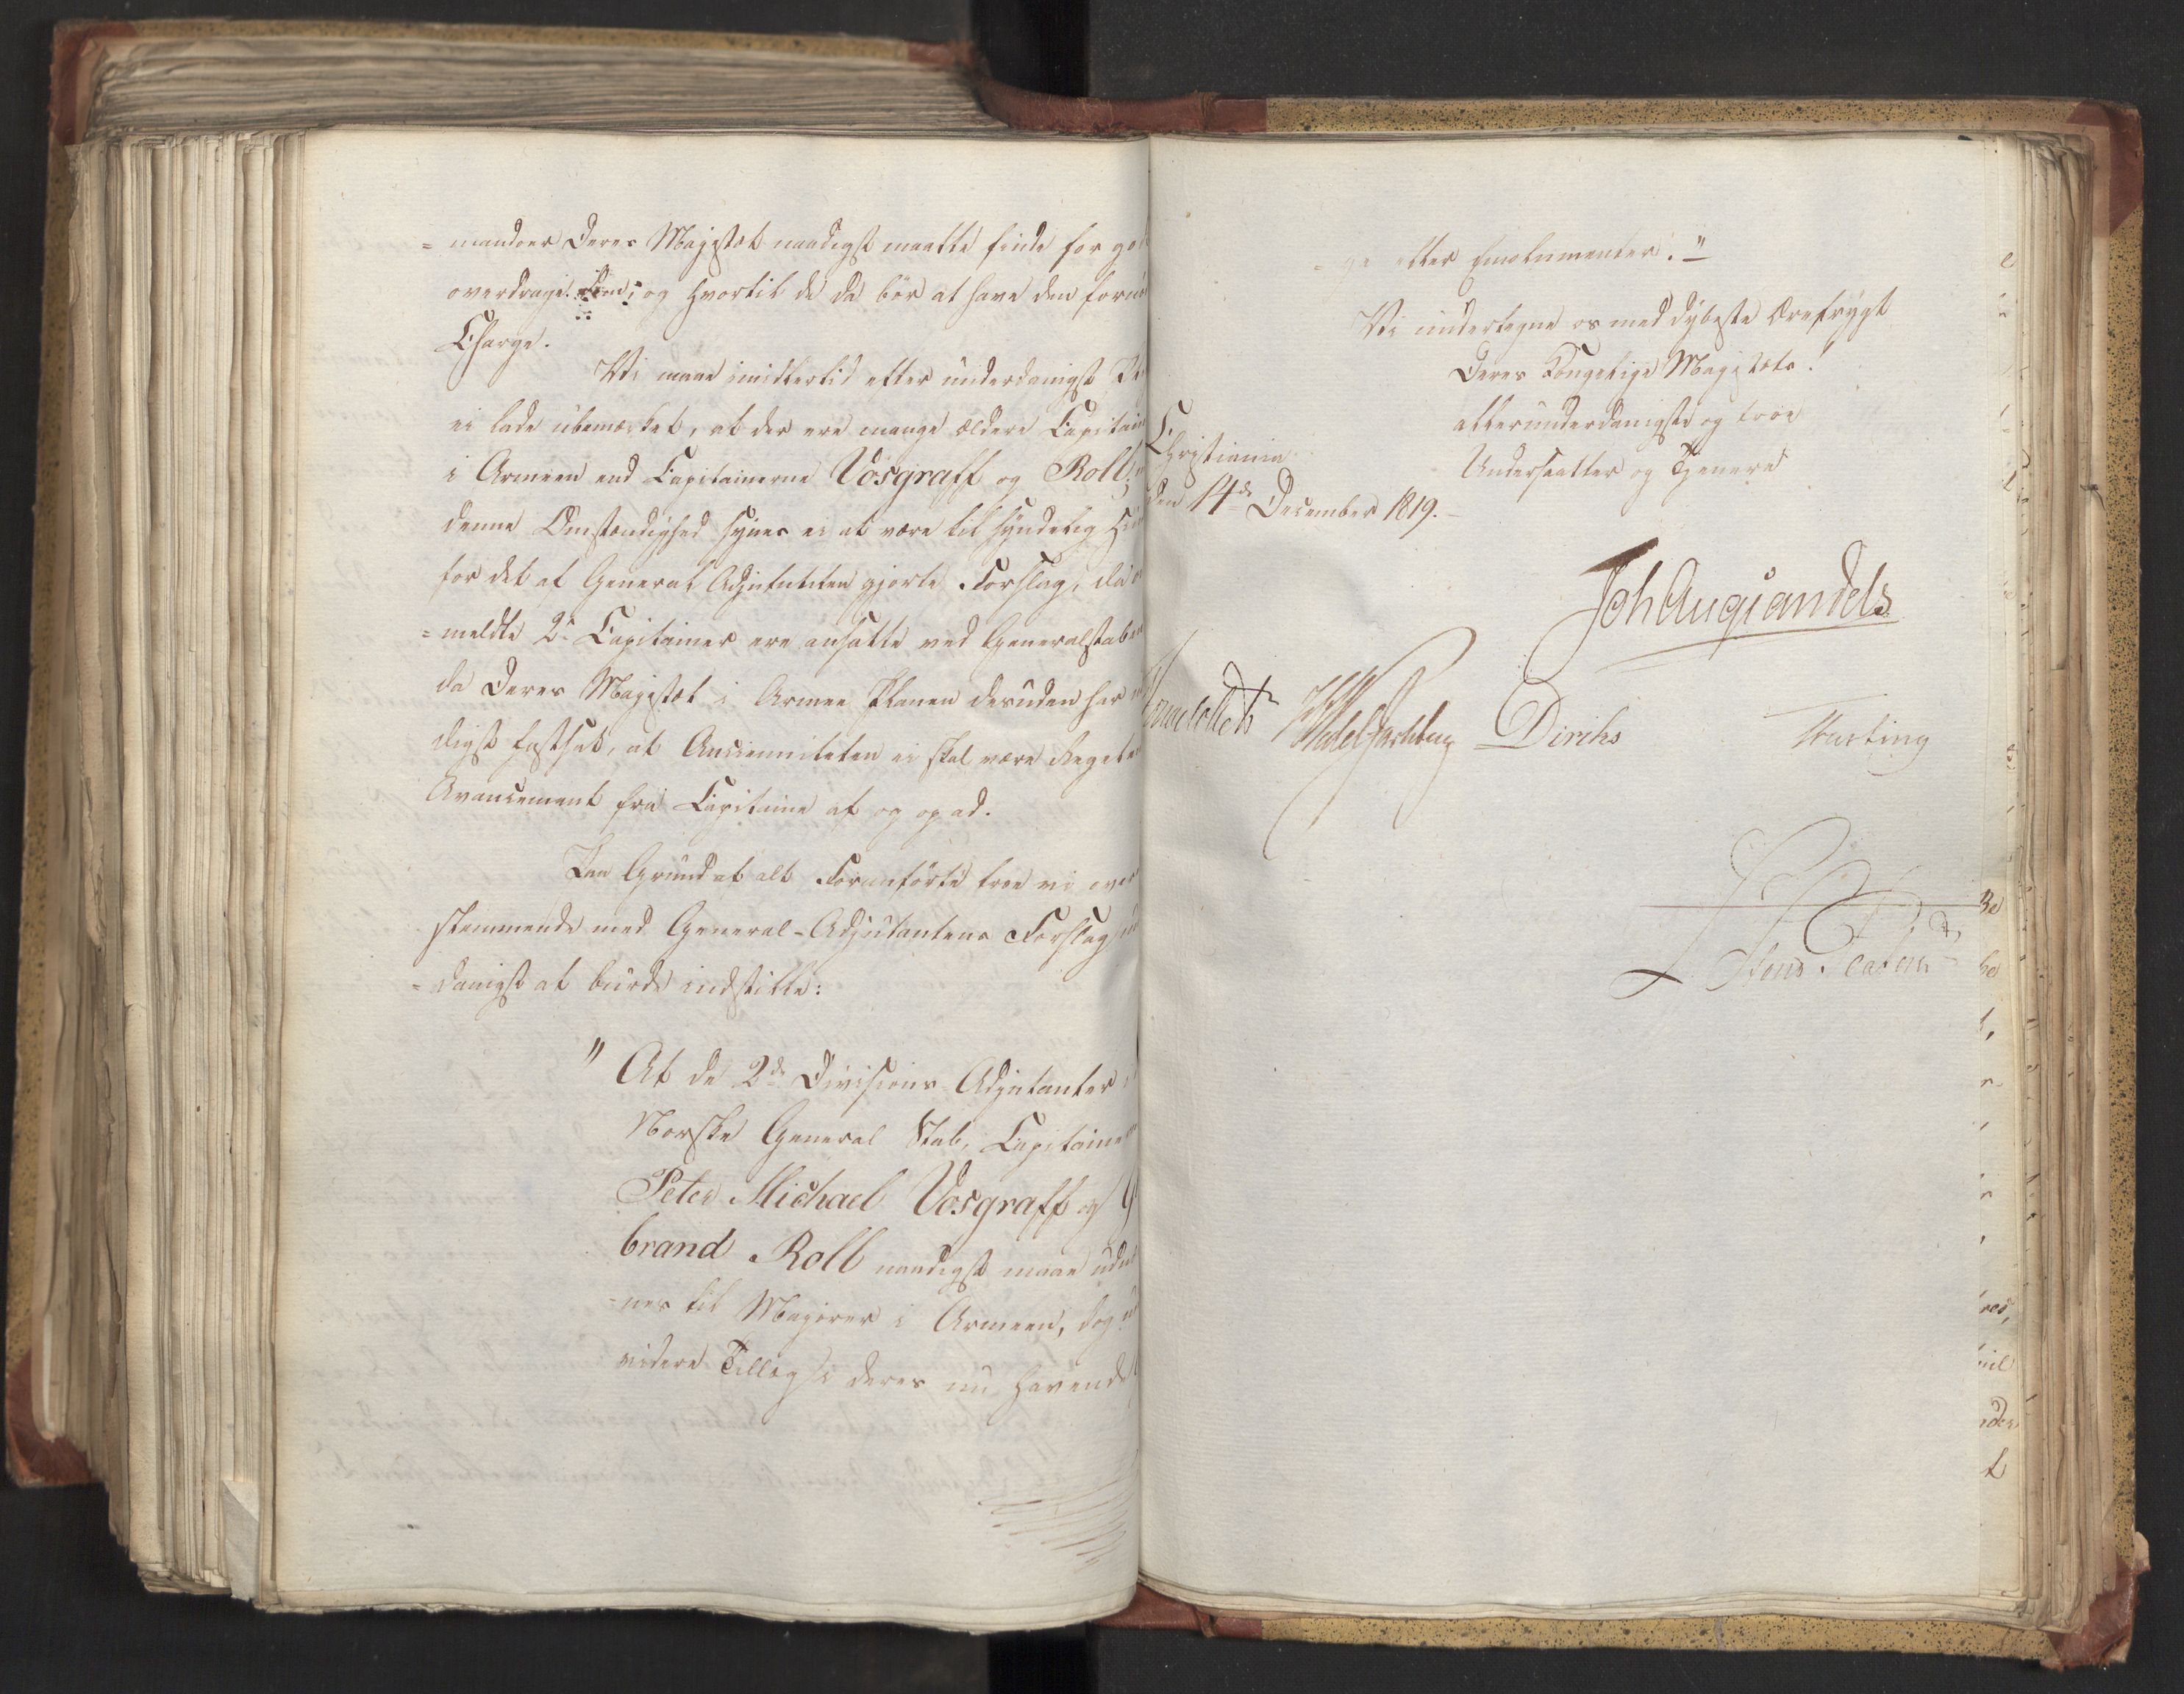 = mandoer Deres Majestæt naadigst maatte finde for go
overdrage dem; og hvortil de da bör at have den forn
Charge.
Vi maae imidlertid efter underdanigst
ei lade ubemærket, at der ere mange ældere Capitain
i Armeen end Capitainerne Vosgraff og Roll;
denne Omstændighed synes ei at være til synderlig Hin
for det af General Adjutanten gjorte Forslag, da
= meldte 2de Capitainer ere ansatte ved Generalstaben
da Deres Majestæt i Armee Planen desuden har
digst fastsat, at Anciennиteten ei skal være Regel
Avancement fra Capitaine af og opad.
Paa Grund af alt Foranförte troe vi over
stemmende med General-Adjutantens Forslag
= danigst at burde indstille:
" At de 2de Divisions-Adjutanter
Norske General Stab, Capitaine
Peter Michael Vosgraff og
brand Roll naadigst maae udn
= nes til Majorer i Armeen, dog
videre Tillæg i deres nu havende
= ge eller Emolumenter. "
Vi undertegne os med dybeste Ærefrygt
Deres Kongelige Majestæts!
allerunderdanigste og troe
Undersaatter og Tjenere
Christiania
den 14de December 1819.
Joh Aug Sandels
Jonas Collett Wedel Jarlsberg Diriks Hasting